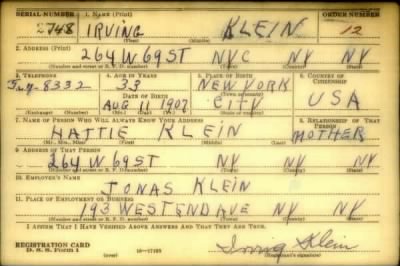 SERIAL NUMBER 1. NAME (Print) ORDER NUMBER
2748 IRVING KLEIN 12
(First) (Middle) (Last)
2. ADDRESS (Print)
264 W 69 ST NYC NY NY
(Number and street or R. F. D. number) (Town) (County) (State)
3. TELEPHONE 4. AGE IN YEARS 5. PLACE OF BIRTH 6. COUNTRY OF CITIZENSHIP
8332 33 NEW YORK
DATE OF BIRTH (Town or county)
AUG 11 1907 CITY USA
(Exchange) (Number) (Mo.) (Day) (Yr.) (State or country)
7. NAME OF PERSON WHO WILL ALWAYS KNOW YOUR ADDRESS 8. RELATIONSHIP OF THAT PERSON
HATTIE KLEIN MOTHER
(Mr., Mrs., Miss) (First) (Middle) (Last)
9. ADDRESS OF THAT PERSON
264 W 69 ST NY NY NY
(Number and street or R. F. D. number) (Town) (County) (State)
10. EMPLOYER'S NAME
JONAS KLEIN
11. PLACE OF EMPLOYMENT OR BUSINESS
193 WESTEND AVE NY NY
(Number and street or R. F. D. number) (Town) (County) (State)
I AFFIRM THAT I HAVE VERIFIED ABOVE ANSWERS AND THAT THEY ARE TRUE.
REGISTRATION CARD
D. S. S. Form 1 (over) Irving Klein
(Registrant's signature)